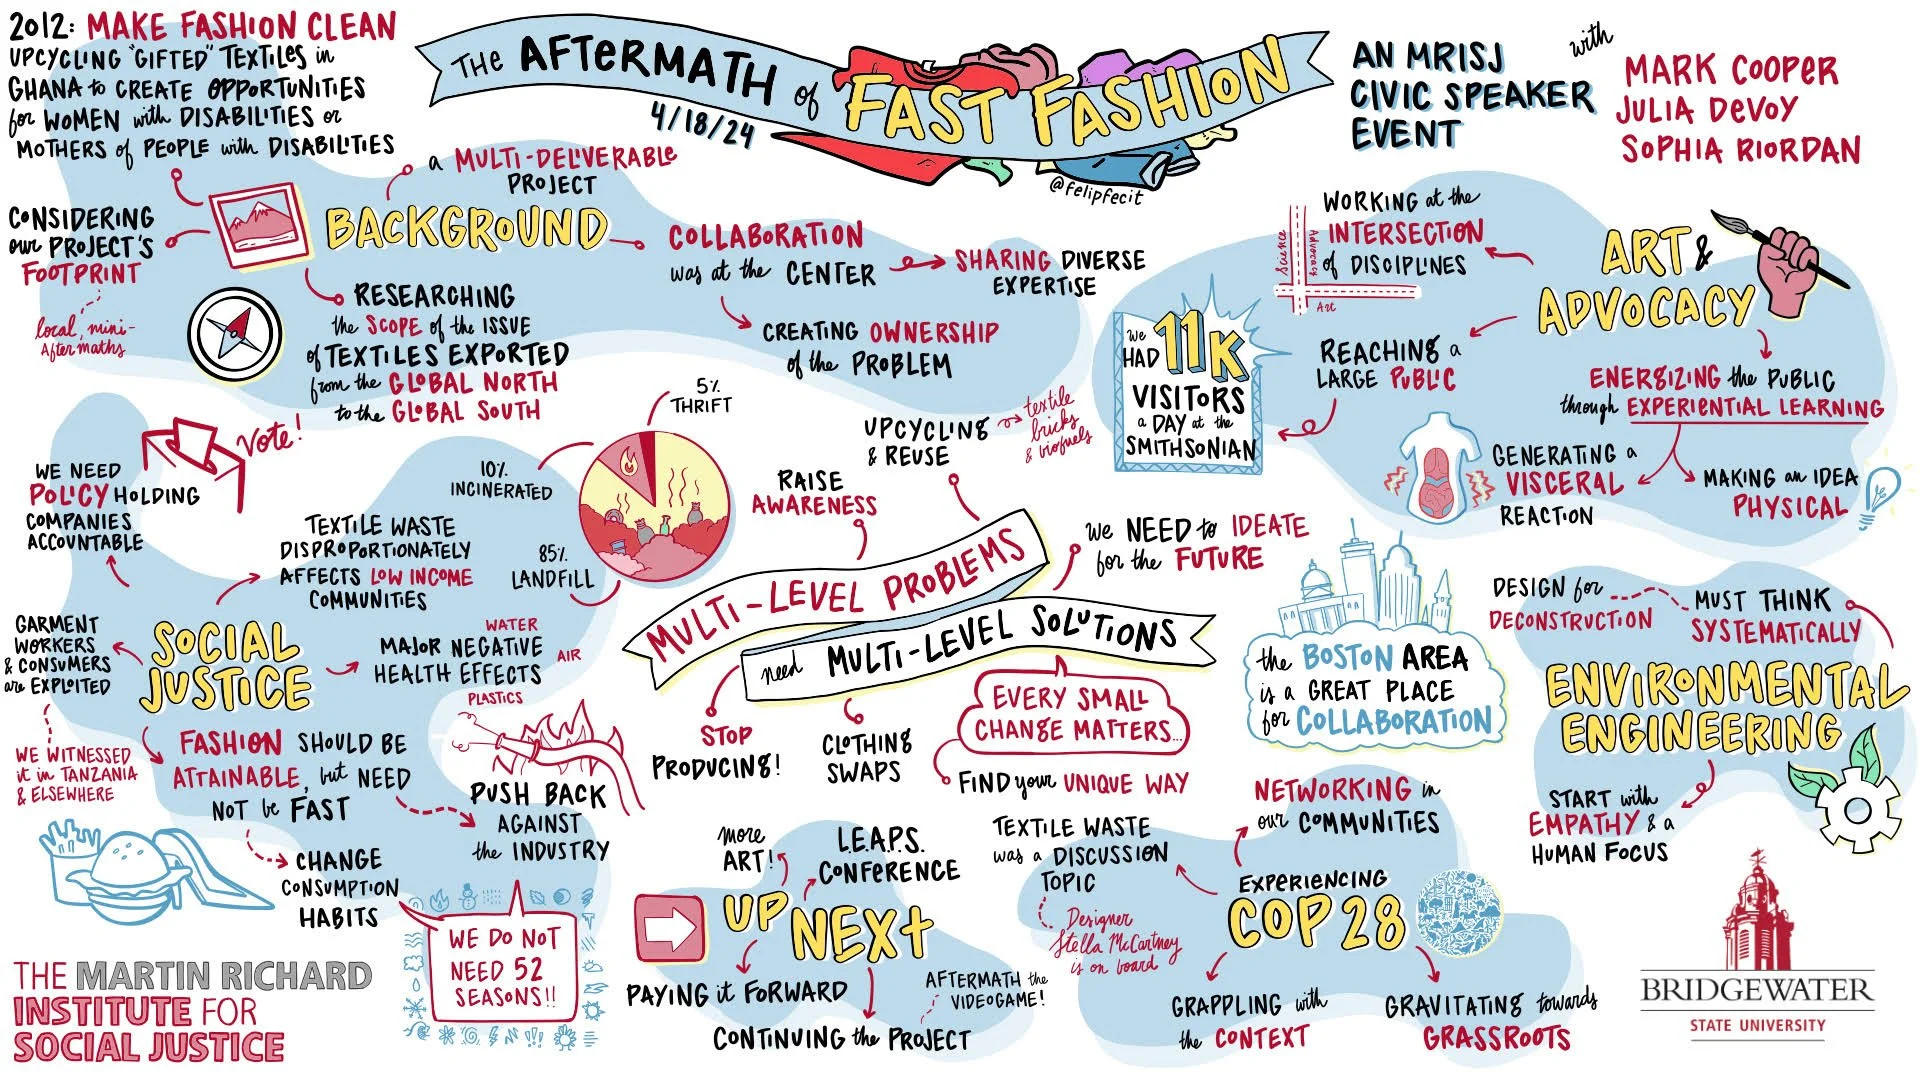 2012: MAKE FASHION CLEAN
UPCYCLING "GIFTED" TEXTILES in
GHANA to CREATE OPPORTUNITIES
for WOMEN with DISABILITIES or
MOTHERS of PEOPLE with DISABILITIES
THE AFTERMATH of FAST FASHION
4/18/24
@felipfecit
AN MRISJ
CIVIC SPEAKER
EVENT
with
MARK COOPER
JULIA DEVOY
SOPHIA RIORDAN
BACKGROUND
a MULTI-DELIVERABLE
PROJECT
CONSIDERING
our PROJECT'S
FOOTPRINT
local, mini-
Aftermaths
RESEARCHING
the SCOPE of the ISSUE
of TEXTILES EXPORTED
from the GLOBAL NORTH
to the GLOBAL SOUTH
COLLABORATION
was at the CENTER
SHARING DIVERSE
EXPERTISE
CREATING OWNERSHIP
of the PROBLEM
ART &
ADVOCACY
WORKING at the
INTERSECTION
of DISCIPLINES
Science
Advocacy
Art
REACHING a
LARGE PUBLIC
We
HAD 11K
VISITORS
a DAY at the
SMITHSONIAN
ENERGIZING the PUBLIC
through EXPERIENTIAL LEARNING
GENERATING a
VISCERAL
REACTION
MAKING an IDEA
PHYSICAL
Vote!
WE NEED
POLICY HOLDING
COMPANIES
ACCOUNTABLE
SOCIAL
JUSTICE
TEXTILE WASTE
DISPROPORTIONATELY
AFFECTS LOW INCOME
COMMUNITIES
5% THRIFT
10%
INCINERATED
85%
LANDFILL
GARMENT
WORKERS
& CONSUMERS
are EXPLOITED
WE WITNESSED
it in TANZANIA
& ELSEWHERE
MAJOR NEGATIVE
HEALTH EFFECTS
WATER
AIR
PLASTICS
FASHION SHOULD BE
ATTAINABLE, but NEED
NOT be FAST
CHANGE
CONSUMPTION
HABITS
PUSH BACK
AGAINST
the INDUSTRY
WE DO NOT
NEED 52
SEASONS!!
MULTI-LEVEL PROBLEMS
need MULTI-LEVEL SOLUTIONS
RAISE
AWARENESS
UPCYCLING
& REUSE
textile
bricks
& biofuels
We NEED to IDEATE
for the FUTURE
STOP
PRODUCING!
CLOTHING
SWAPS
EVERY SMALL
CHANGE MATTERS...
FIND your UNIQUE WAY
the BOSTON AREA
is a GREAT PLACE
for COLLABORATION
ENVIRONMENTAL
ENGINEERING
DESIGN for
DECONSTRUCTION
MUST THINK
SYSTEMATICALLY
START with
EMPATHY & a
HUMAN FOCUS
UP NEXT
more
ART!
L.E.A.P.S.
CONFERENCE
PAYING it FORWARD
CONTINUING the PROJECT
AFTERMATH the
VIDEOGAME!
EXPERIENCING
COP 28
TEXTILE WASTE
was a DISCUSSION
TOPIC
Designer
Stella McCartney
is on board
NETWORKING in
our COMMUNITIES
GRAPPLING with
the CONTEXT
GRAVITATING towards
GRASSROOTS
THE MARTIN RICHARD
INSTITUTE FOR
SOCIAL JUSTICE
BRIDGEWATER
STATE UNIVERSITY